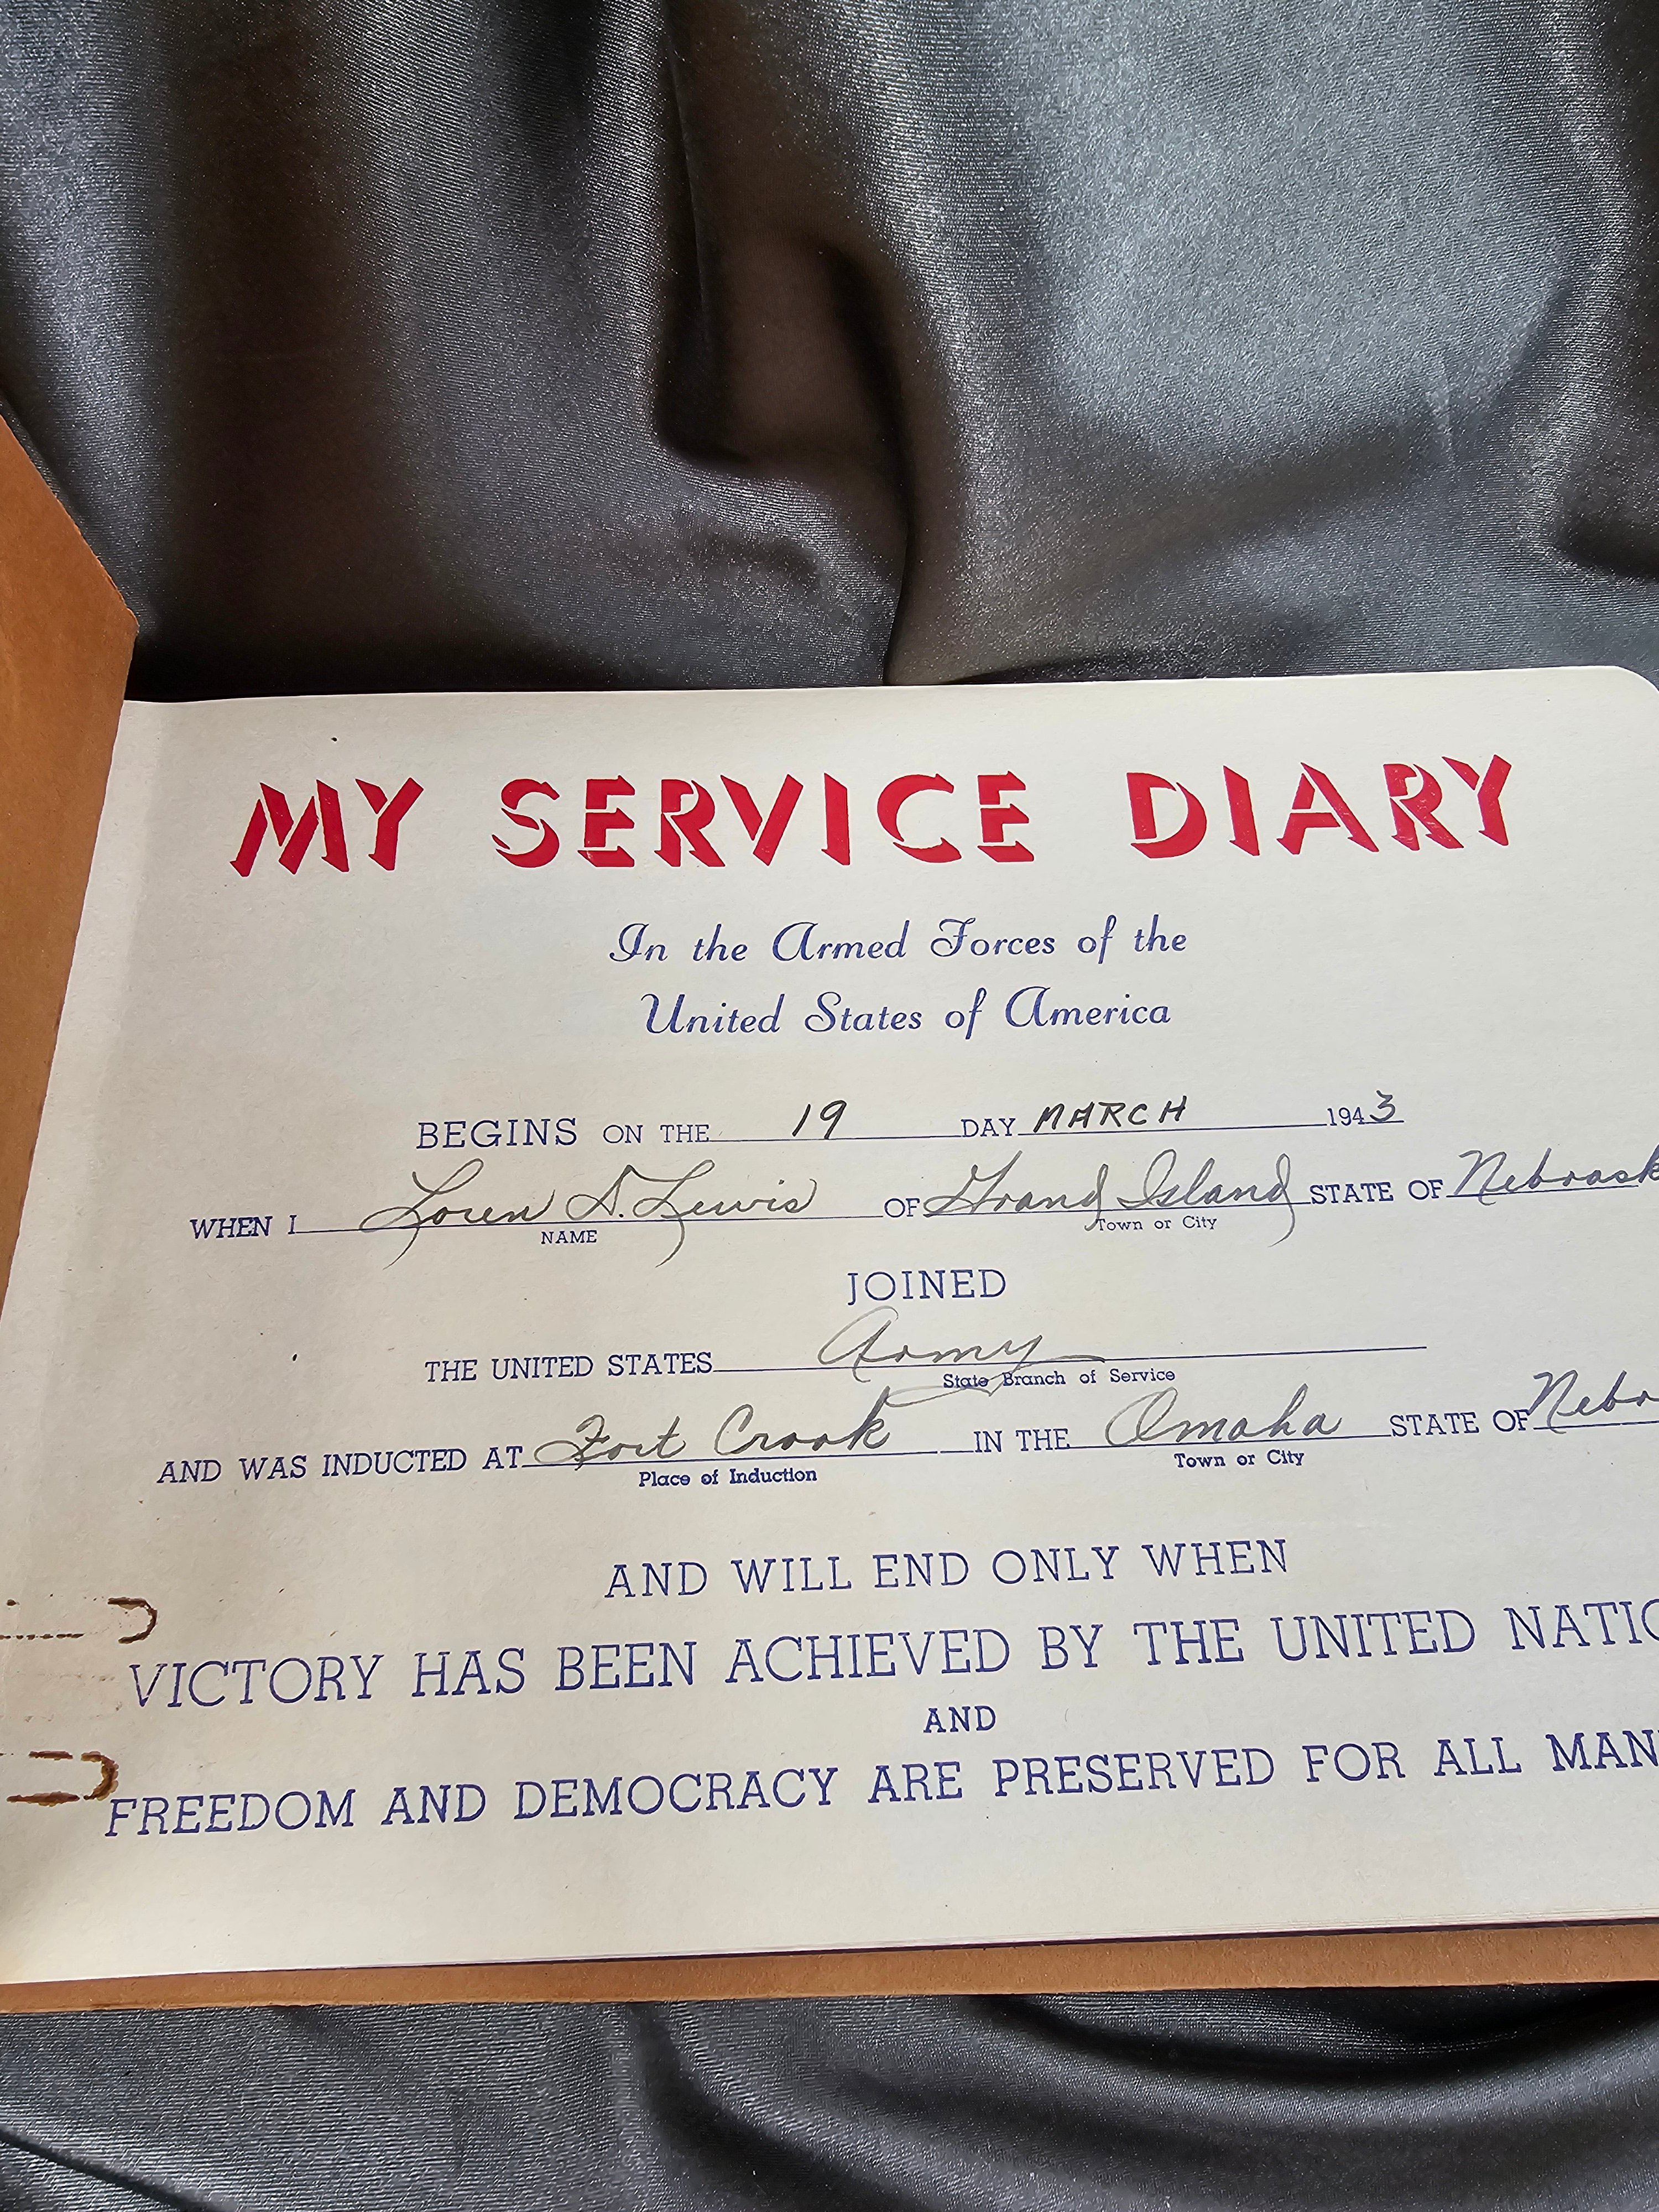 MY SERVICE DIARY
In the Armed Forces of the
United States of America
BEGINS ON THE 19 DAY MARCH 1943
WHEN I Loren D. Lewis OF Grand Island STATE OF Nebrask
NAME Town or City
JOINED
THE UNITED STATES Army
State Branch of Service
AND WAS INDUCTED AT Fort Crook IN THE Omaha STATE OF Nebr
Place of Induction Town or City
AND WILL END ONLY WHEN
VICTORY HAS BEEN ACHIEVED BY THE UNITED NATIO
AND
FREEDOM AND DEMOCRACY ARE PRESERVED FOR ALL MAN